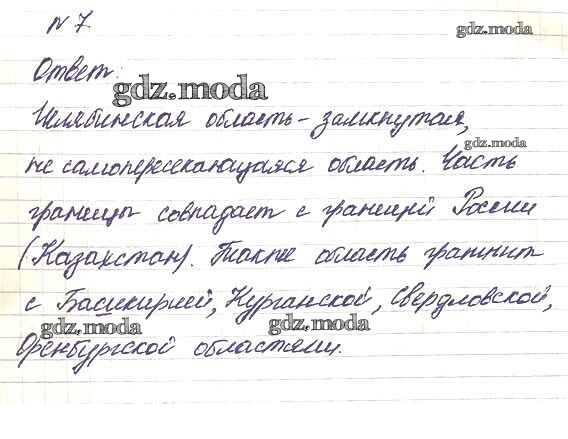 N 7.
gdz.moda
Ответ:
gdz.moda
Челябинская область - замкнутая,
gdz.moda
не самопересекающаяся область. Часть
границы совпадает с границей России
(Казахстан). Также область граничит
с Башкирией, Курганской, Свердловской,
gdz.moda gdz.moda
Оренбургской областями.